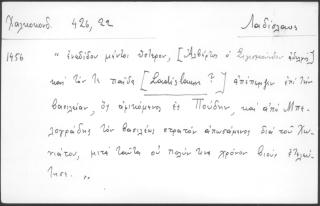 Χαλκοκονδ. 426, 22
Λαδίσλαος
1456
" ἐνεδίδον μέντοι ὕστερον, [Ἀλβέρτος ὁ Σιγισμούνδου
καὶ τόν τε παῖδα [Ladislaum ?] ἀπέπεμψεν ἐπὶ τὴν
βασιλείαν, ὃς ἀφικόμενος ἐς Πούδην, καὶ ἀπὸ Μπε-
λογράδης τὸν βασιλέως στρατὸν ἀπωσάμενος διὰ τοῦ Χω-
νιάτου, μετὰ ταῦτα οὐ πολύν τινα χρόνον βιοὺς ἐτελεύ-
τησε. "